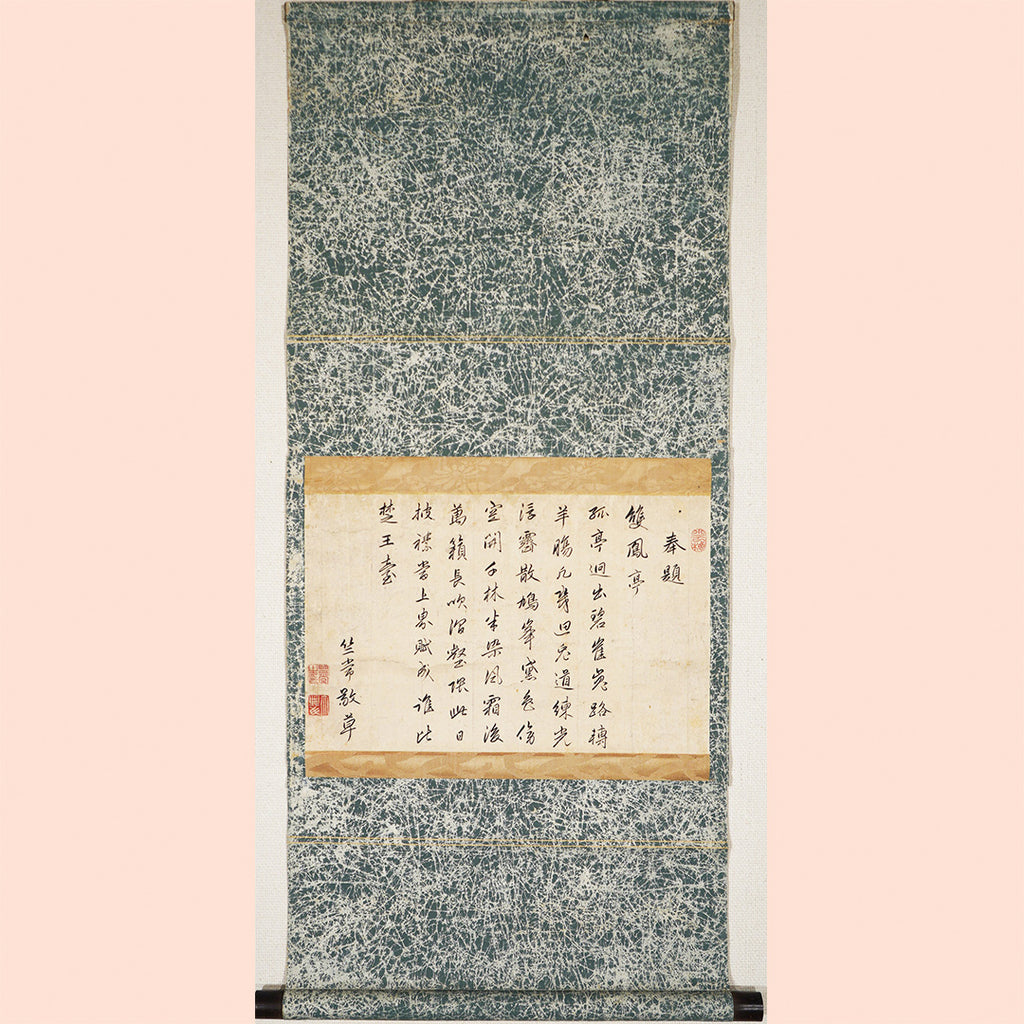 奉題
雙鳳亭
孤亭迥出碧崔嵬路轉
羊腸凡幾回兎道練光
浮霽散鳩峯黛色傍
空開千林半染風霜後
萬籟長吹澗壑隈此日
披襟當上界賦成誰比
楚王臺
竺常敬草